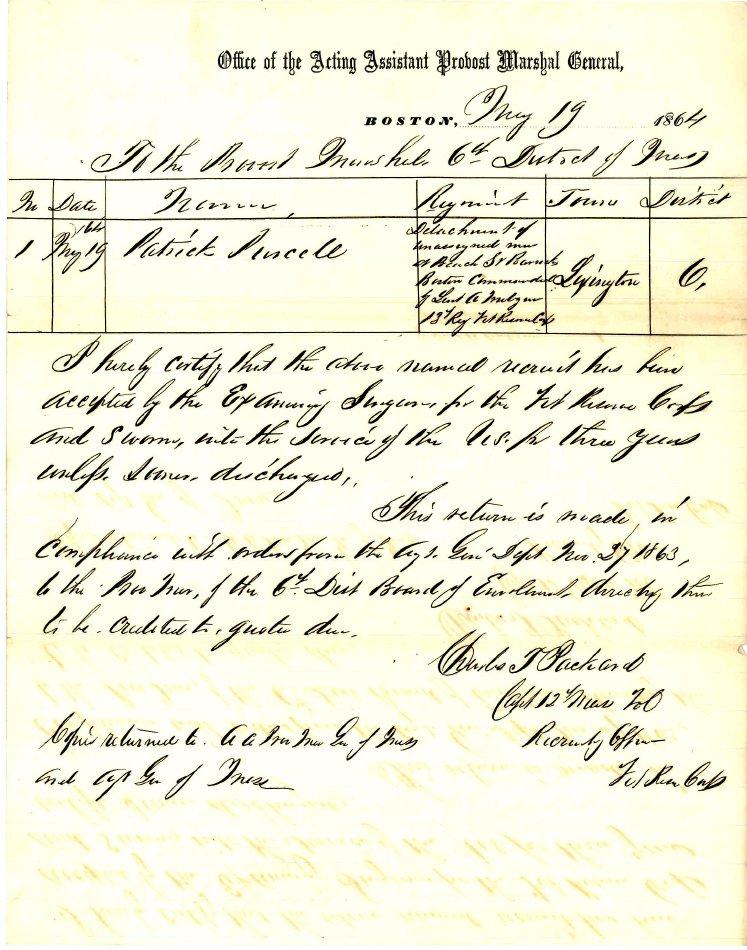 Office of the Acting Assistant Provost Marshal General,
BOSTON, May 19 1864
To the Provost Marshal 6th District of Mass
No Date Name, Regiment Town District
/64
1 May 19 Patrick Purcell Lexington 6,
Detachment of
unassigned men
at Beach St Barracks
Boston Commanded
by Lieut A
13th Reg Vet Reserve Corps
I hereby certify that the above named recruit has been
accepted by the Examining Surgeon for the Vet Reserve Corps
and sworn, into the service of the U.S. for three years
unless sooner discharged,.
This return is made in
compliance with orders from the Agt. Genl Dept Nov. 27 1863,
to the Pro Mar, of the 6th Dist Board of Enrolment directing them
to be credited to quota due.
Charles T Packard
Capt 12th Mass Vol
Copies returned to A A Pro Mar Gen of Mass Recruiting Officer
and Agt Gen of Mass Vet Res Corps